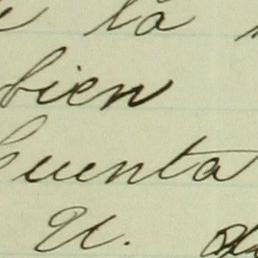 la
bien
Cuenta
U.